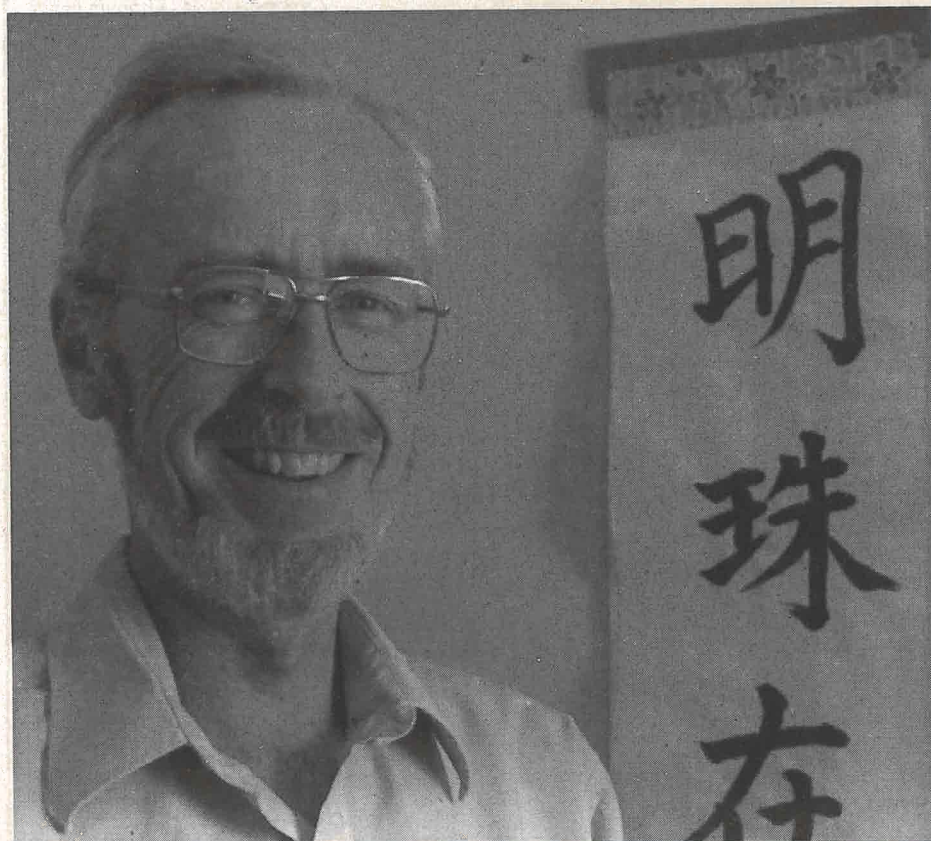 明珠在